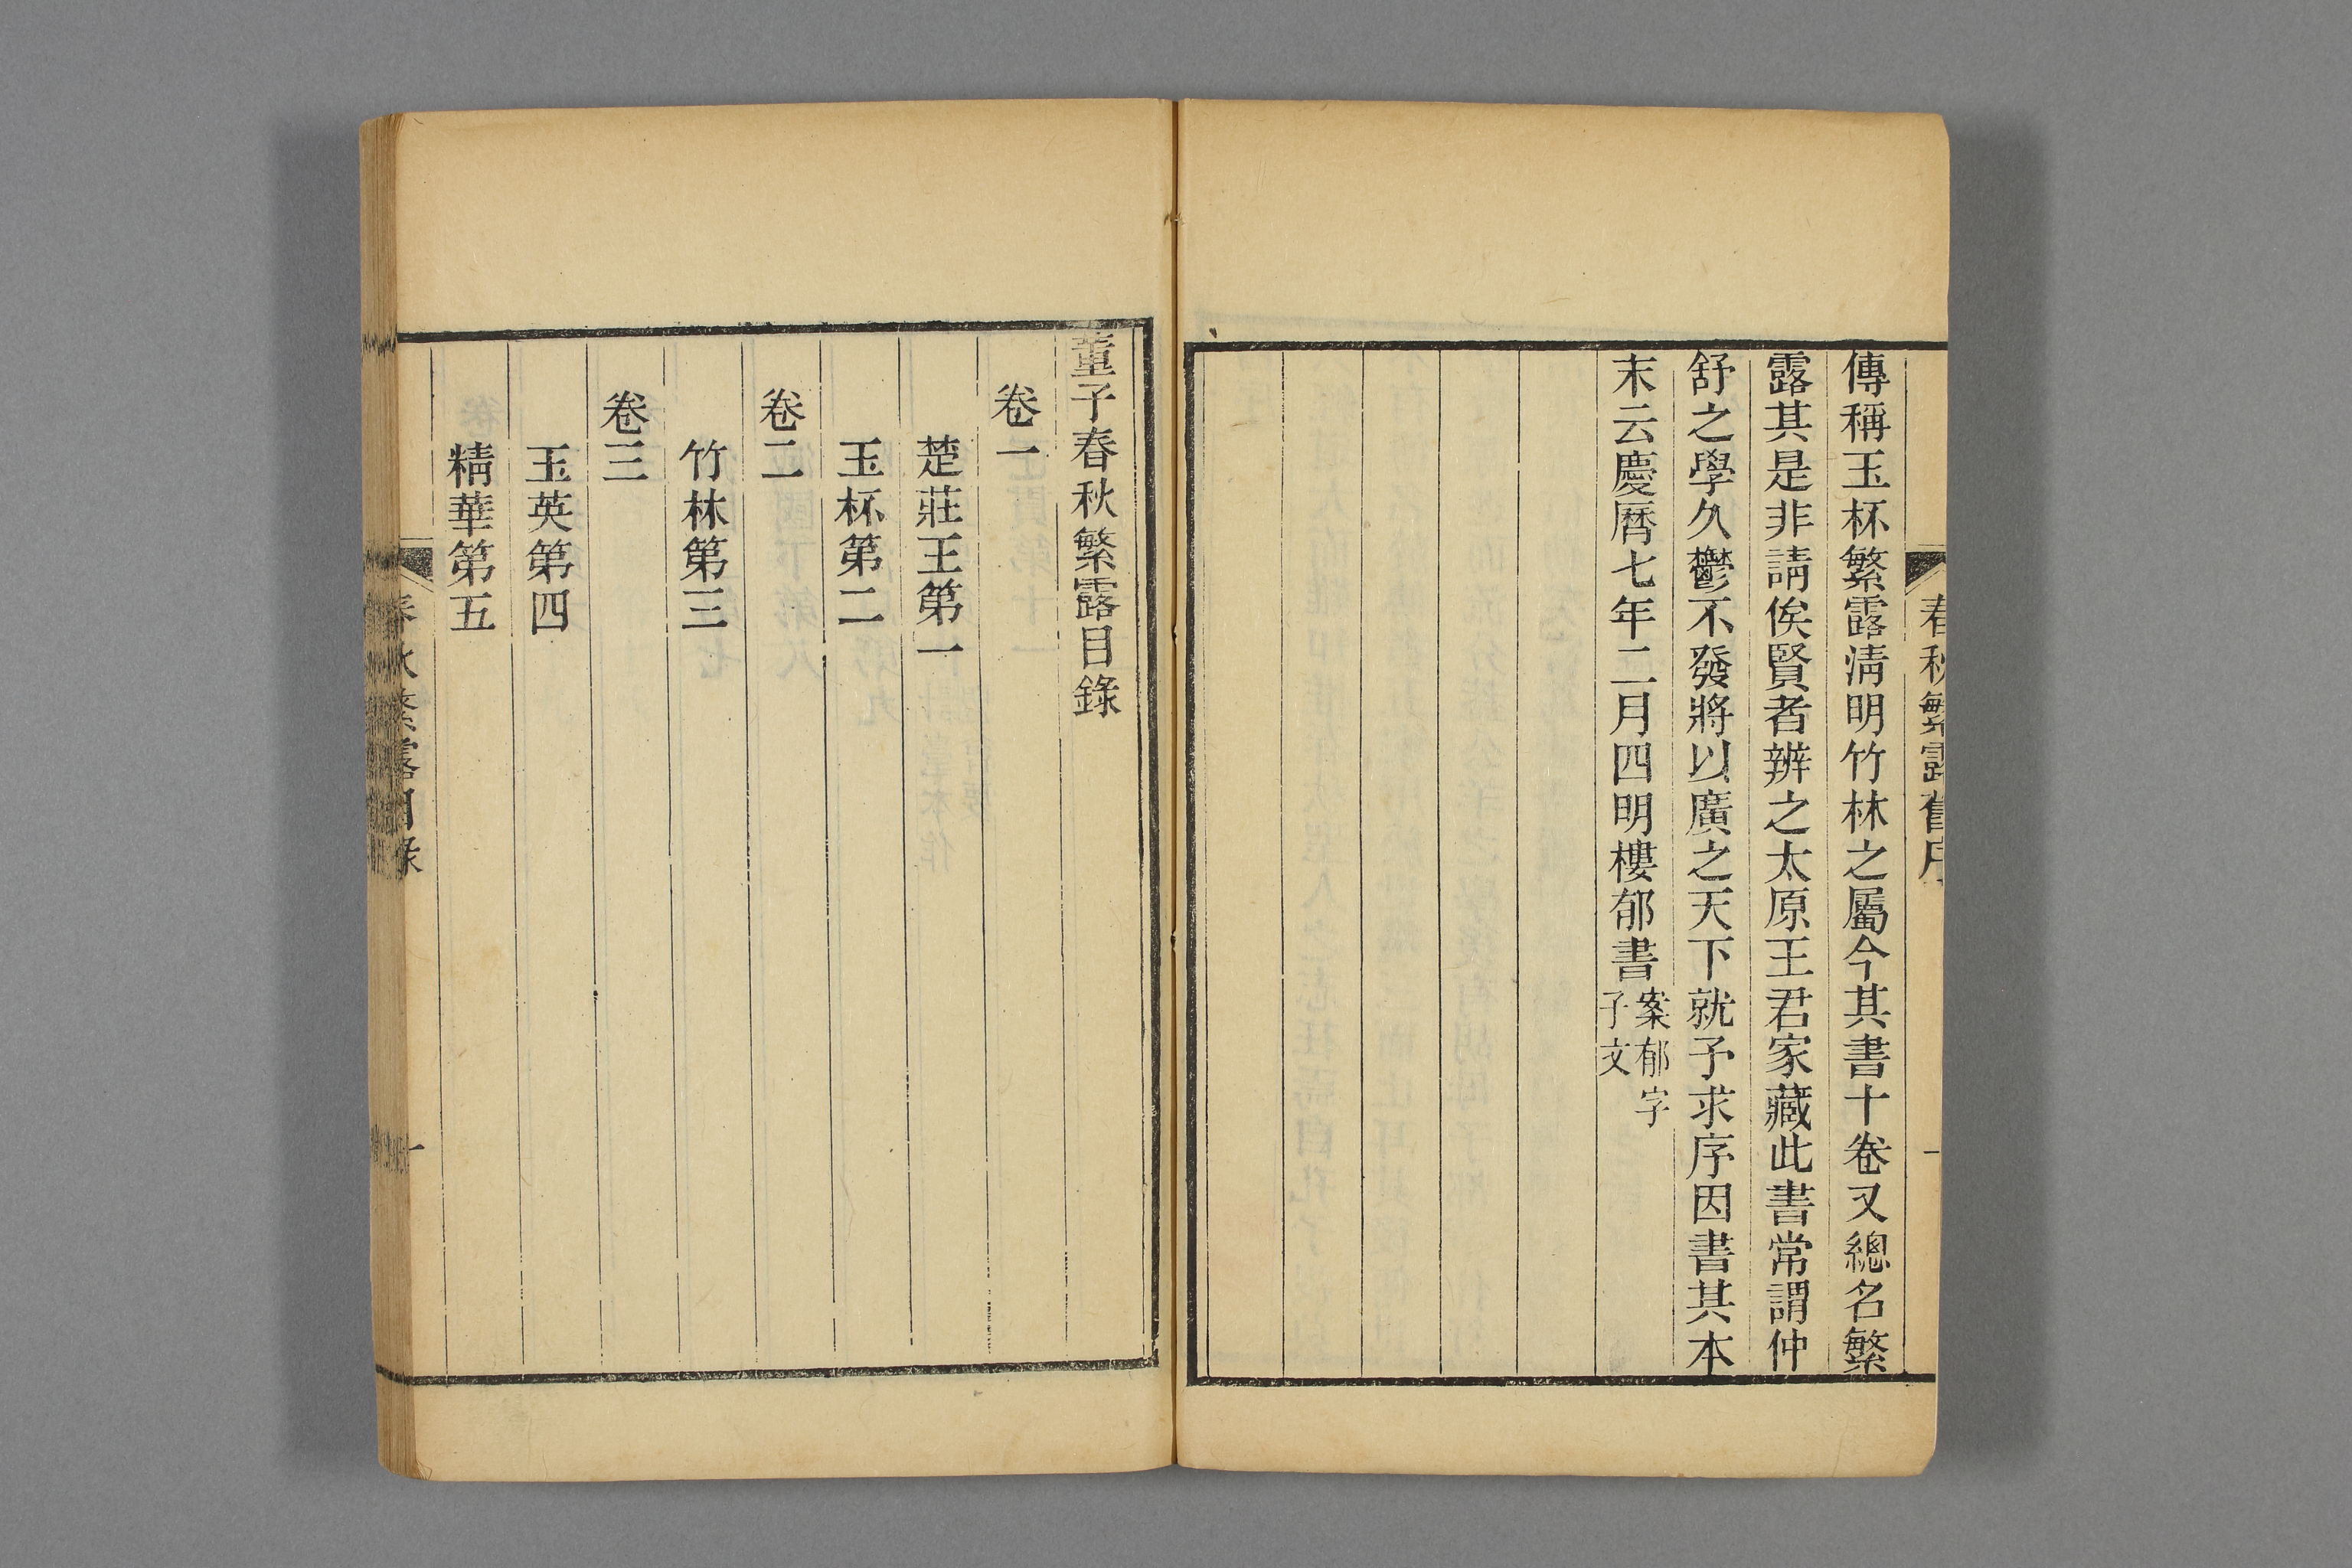 春秋繁露舊序
一
傳稱玉杯繁露淸明竹林之屬今其書十卷又總名繁
露其是非請俟賢者辨之太原王君家藏此書常謂仲
舒之學久鬱不發將以廣之天下就予求序因書其本
末云慶曆七年二月四明樓郁書案郁字
子文
董子春秋繁露目錄
卷一
楚莊王第一
玉杯第二
卷二
竹林第三
卷三
玉英第四
精華第五
春秋繁露目錄
一